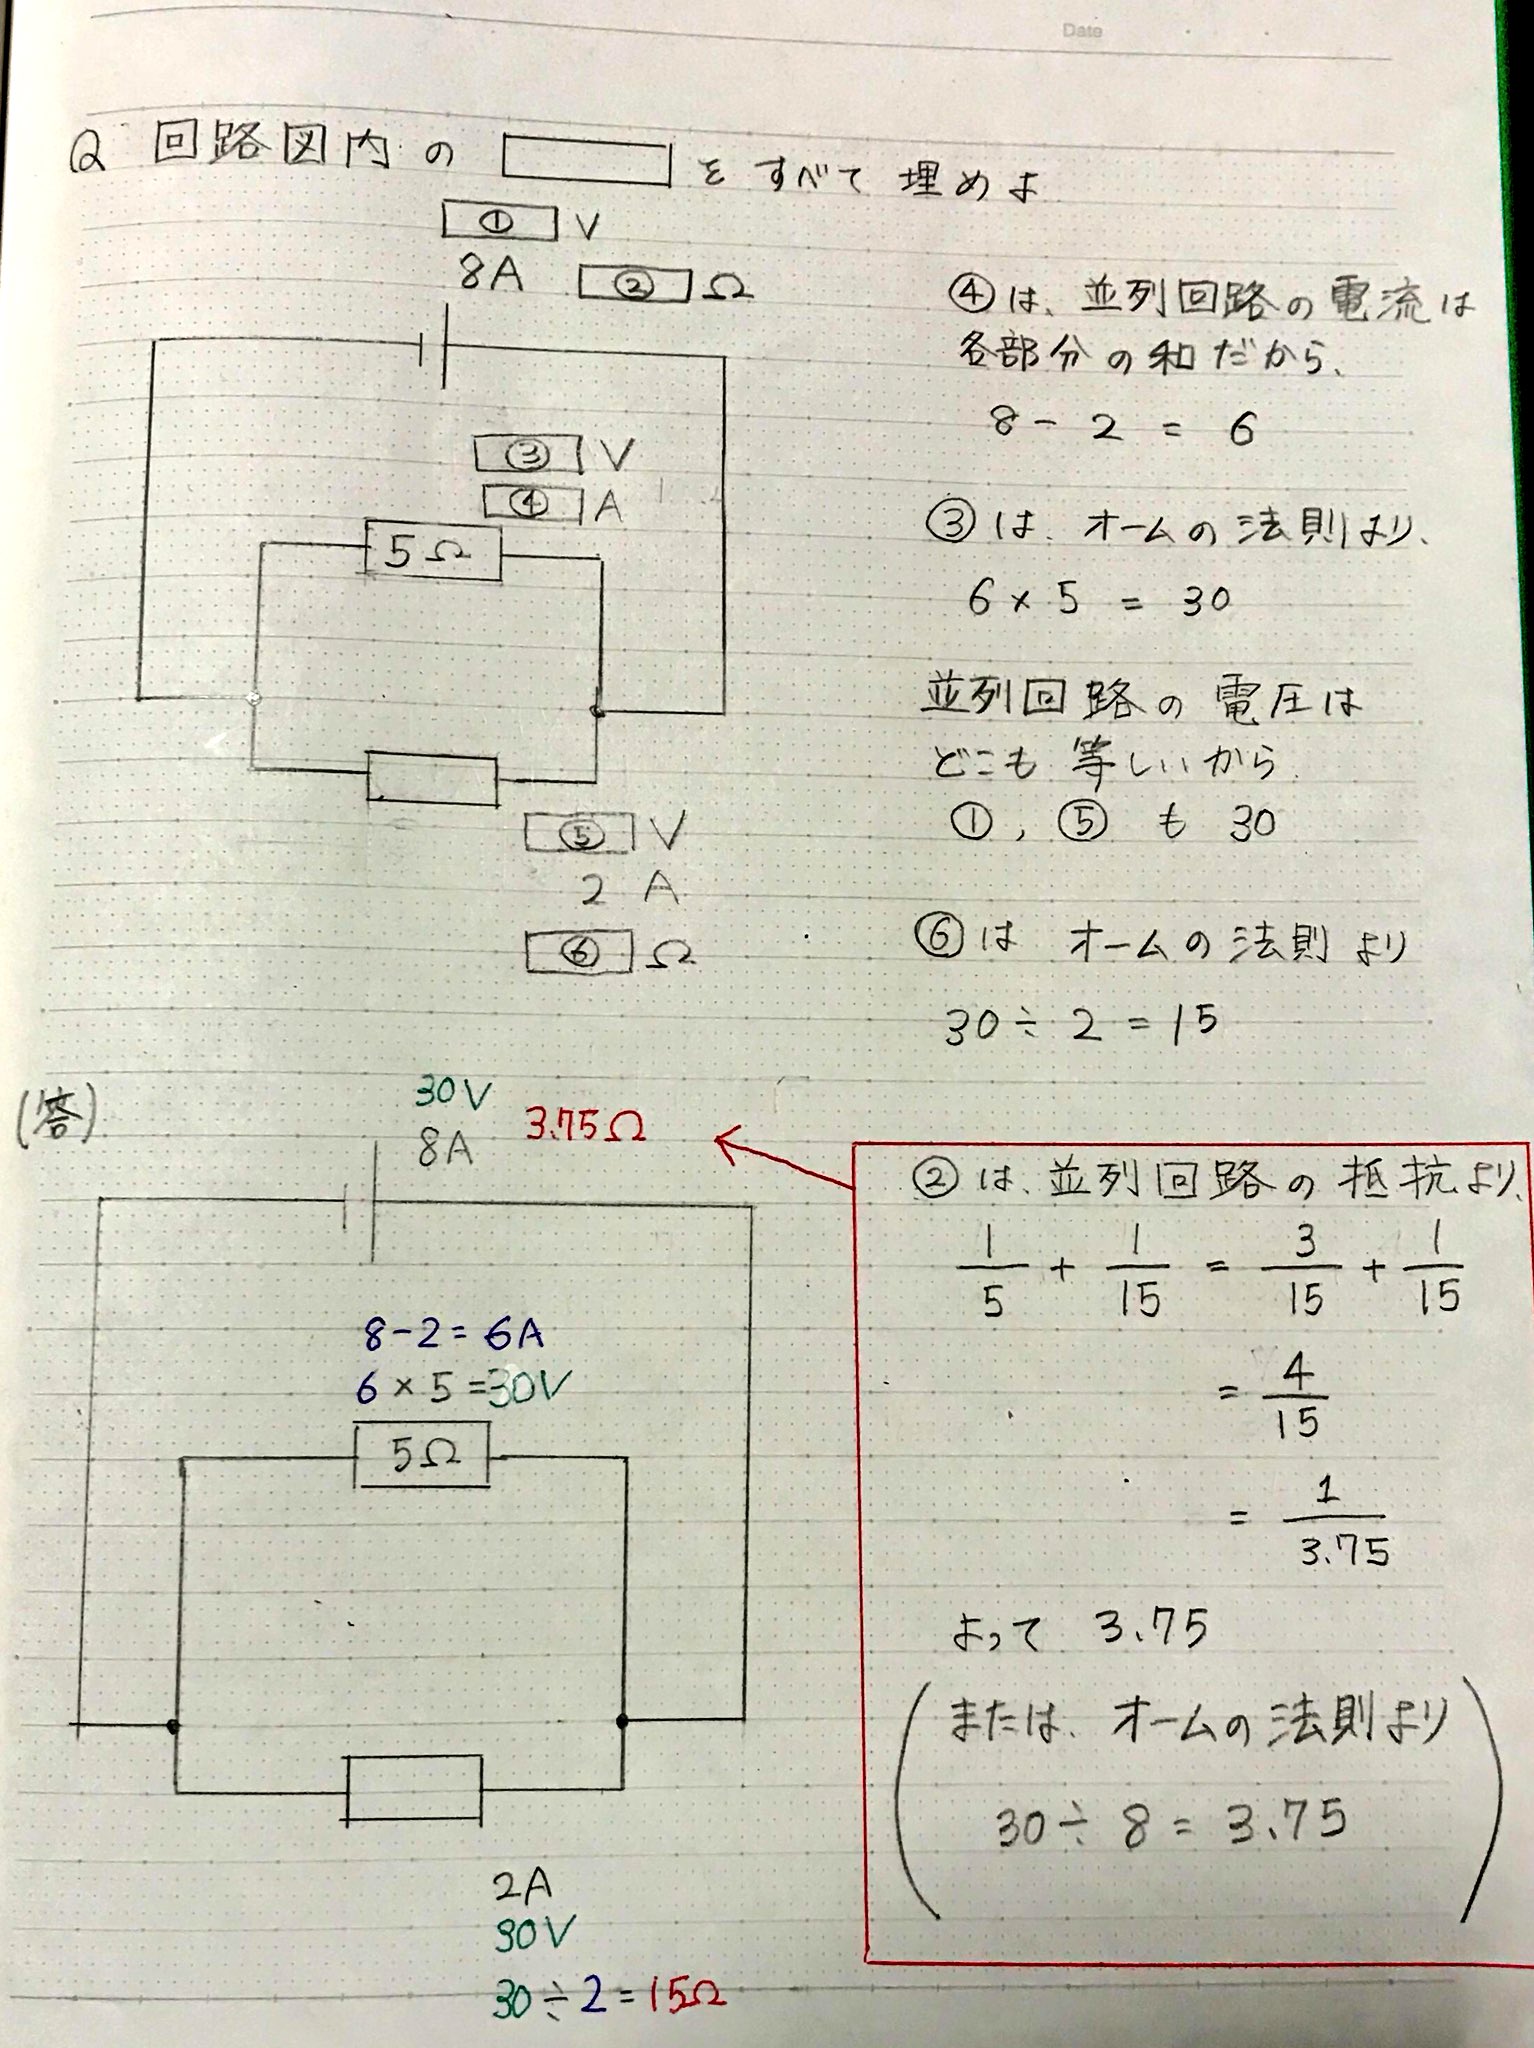 Date
Q 回路図内の をすべて埋めよ
① V
8A ② Ω
③ V
④ A
5Ω
⑤ V
2 A
⑥ Ω
④は、並列回路の電流は
各部分の和だから、
8 - 2 = 6
③は、オームの法則より、
6 × 5 = 30
並列回路の電圧は
どこも等しいから
①, ⑤ も 30
⑥は オームの法則より
30 ÷ 2 = 15
(答)
30V
8A 3.75Ω
8-2=6A
6×5=30V
5Ω
2A
30V
30÷2=15Ω
②は、並列回路の抵抗より、
1/5 + 1/15 = 3/15 + 1/15
= 4/15
= 1/3.75
よって 3.75
(または、オームの法則より
30 ÷ 8 = 3.75)